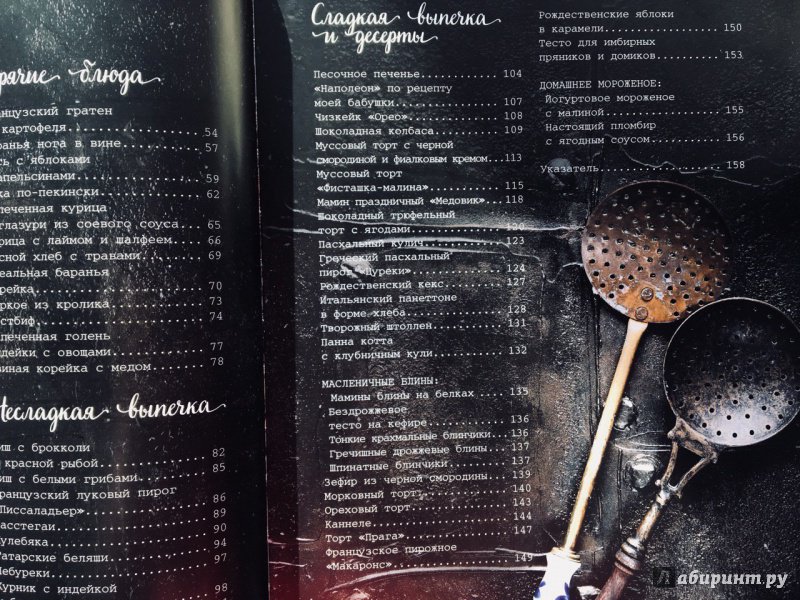 рячие блюда
нцузский гратен
картофеля 54
ранья нога в вине 57
ь с яблоками
апельсинами 59
ка по-пекински 62
печенная курица
глазури из соевого соуса 65
рица с лаймом и шалфеем 66
сной хлеб с травами 69
еальная баранья
рейка 70
ркое из кролика 73
стбиф 74
печенная голень
ндейки с овощами 77
виная корейка с медом 78
Несладкая выпечка
иш с брокколи
красной рыбой 82
иш с белыми грибами 85
ранцузский луковый пирог
Писсаладьер» 86
асстегаи 89
улебяка 90
Татарские беляши 94
Чебуреки 97
Курник с индейкой 98
Сладкая выпечка
и десерты
Песочное печенье 104
«Наполеон» по рецепту
моей бабушки 107
Чизкейк «Орео» 108
Шоколадная колбаса 109
Муссовый торт с черной
смородиной и фиалковым кремом 113
Муссовый торт
«Фисташка-малина» 115
Мамин праздничный «Медовик» 118
Шоколадный трюфельный
торт с ягодами 120
Пасхальный кулич 123
Греческий пасхальный
пирог «Цуреки» 124
Рождественский кекс 127
Итальянский панеттоне
в форме хлеба 128
Творожный штоллен 131
Панна котта
с клубничным кули 132
МАСЛЕНИЧНЫЕ БЛИНЫ:
Мамины блины на белках 135
Бездрожжевое
тесто на кефире 136
Тонкие крахмальные блинчики 136
Гречишные дрожжевые блины 137
Шпинатные блинчики 137
Зефир из черной смородины 139
Морковный торт 140
Ореховый торт 143
Каннеле 144
Торт «Прага» 147
Французское пирожное
«Макаронс» 149
Рождественские яблоки
в карамели 150
Тесто для имбирных
пряников и домиков 153
ДОМАШНЕЕ МОРОЖЕНОЕ:
Йогуртовое мороженое
с малиной 155
Настоящий пломбир
с ягодным соусом 156
Указатель 158
Лабиринт.ру